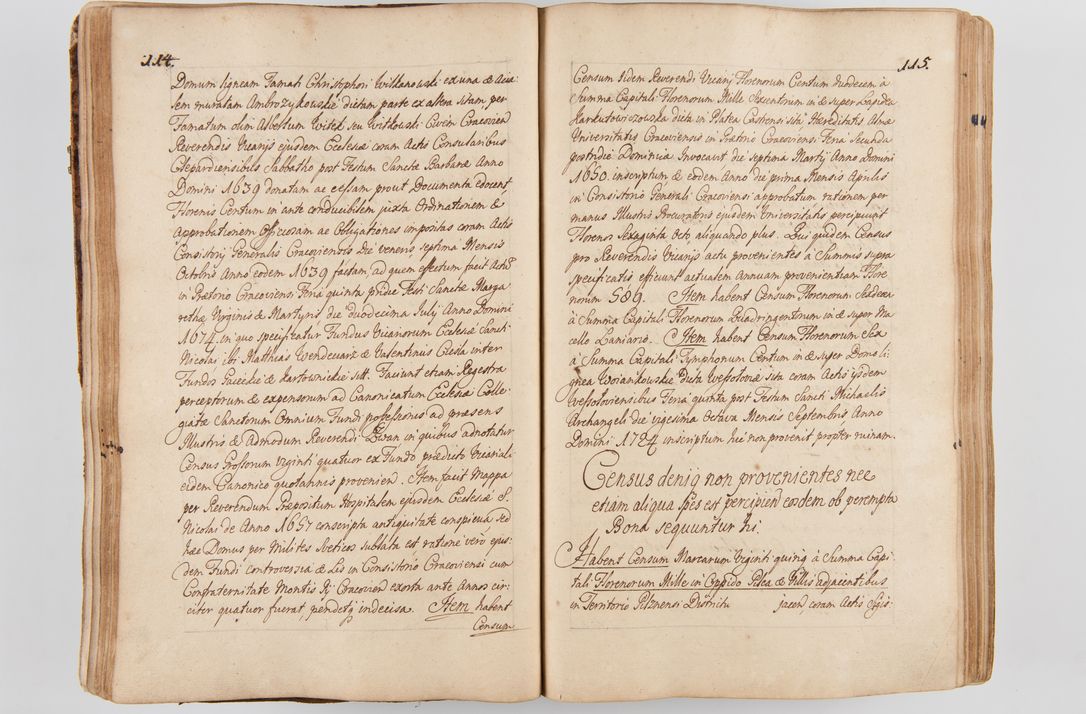 114.
Domum ligneam Famati Christophori Witkowski ex una & Acia
sem muratam Ambrozykowskie dictam parte ex altera sitam, per
Famatum olim Albertum Witek seu Witkowski Civem Cracovien
Reverendis Vicarijs ejusdem Ecclesiæ coram Actis Consularibus
Clepardiensibus Sabbatho post Festum Sanctæ Barbaræ Anno
Domini 1639 donatam ac cessam prout Documenta edocent,
Florenis Centum in ante conducibilem juxta Ordinationem &
Approbationem Officiosam ac Obligationes impositas coram Actis
Consistorij Generalis Cracoviensis Die Veneris septima Mensis
Octobris Anno eodem 1639 factam, ad quem effectum facit Actū
in Prætorio Cracoviensi Feria quinta pridie Festi Sanctæ Marga
rethæ Virginis & Martyris die duodecima July Anno Domini
1674. in quo specificatur Fundus Vicariorum Ecclesiæ Sancti
Nicolai ibi Matthias Wendewarz & Valentinus Ciesla inter
Fundos Pareckie & Kartownickie sitt. Faciunt etiam Regestra
perceptorum & expensorum ad Canonicatum Ecclesiæ Colle-
giatæ Sanctorum Omnium Fundi possessionis ad præsens
Illustris & Admodum Reverendi Liwan in quibus adnotatur
Census Grossorum viginti quatuor ex Fundo prædicto Vicariali
eidem Canonico quotannis provenien. Item facit Mappa
per Reverendum Præpositum Hospitalem ejusdem Ecclesiæ S.
Nicolai de Anno 1657 conscripta antiquitate conspicua sed
hæc Domus per Milites Sveticos sublata est ratione vero ejus-
dem Fundi controversia & Lis in Consistorio Cracoviensi cum
Confraternitate Montis Pi Cracovien exorta ante Annos cir-
citer quatuor fuerat, pendetq indecisa. Item habent
Censum
115.
Censum iidem Reverendi Vicarij Florenorum Centum duodecem à
Summa Capitali Florenorum Mille Sexcentrum in & super Lapidea
Jarkutowiszowska dicta in Platea Castrensi sita Hereditatis Almæ
Universitatis Cracoviensis in Prætorio Cracoviensi Feria Secunda
postridie Dominicæ Invocavit die septima Martij Anno Domini
1650. inscriptum & eodem Anno die prima Mensis Aprilis
in Consistorio Generali Cracoviensi approbatum rationem per
manus Illustris Procuratoris ejusdem Universitatis percipiunt
Florenos Sexaginta Octo, aliquando plus. Qui quidem Census
pro Reverendis Vicarijs actu provenientes à Summis supra
specificatis efficiunt actualem Annuam provenientiam Flore
norum 589. Item habent Censum Florenorum Sedecim
à Summa Capitali Florenorum Quadringentrum in & super Ma
cello Laniario. Item habent Censum Florenorum Sex
à Summa Capitali Tymphonum Centum in & super Domo li-
gnea Woiankowskie dicta Wessolowiæ sita coram Actis ijsdem
Wessoloviensibus Feria quinta post Festum Sancti Michaelis
Archangeli die vigesima Octava Mensis Septembris Anno
Domini 1724 inscriptum hic non provenit propter ruinam.
Census deniq non provenientes nec
etiam aliqua spes est percipien eosdem ob perempta
Bona sequuntur hi.
Habent Censum Marcarum Viginti quinq à Summa Capi-
tali Florenorum Mille in Oppido Pilca & Villis adjacentibus
in Territorio Pilznensi Districtu jacen, coram Actis Epis-